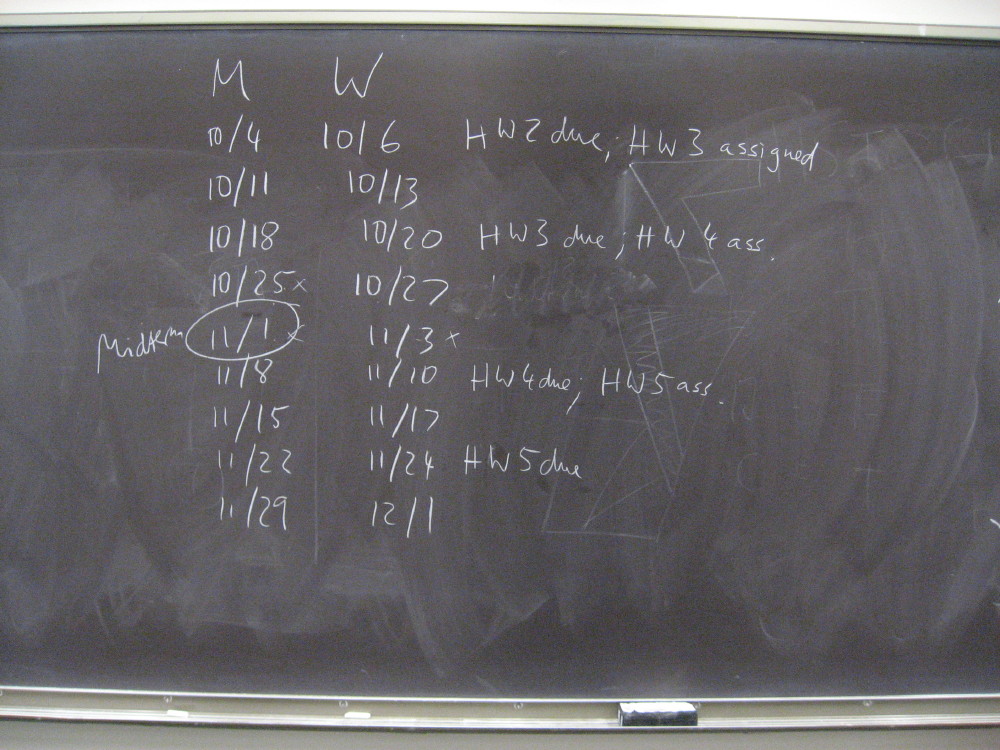 M W
10/4 10/6 HW2 due; HW3 assigned
10/11 10/13
10/18 10/20 HW3 due; HW4 ass.
10/25 x 10/27
Midterm 11/1 x 11/3 x
11/8 11/10 HW4 due; HW5 ass.
11/15 11/17
11/22 11/24 HW5 due
11/29 12/1